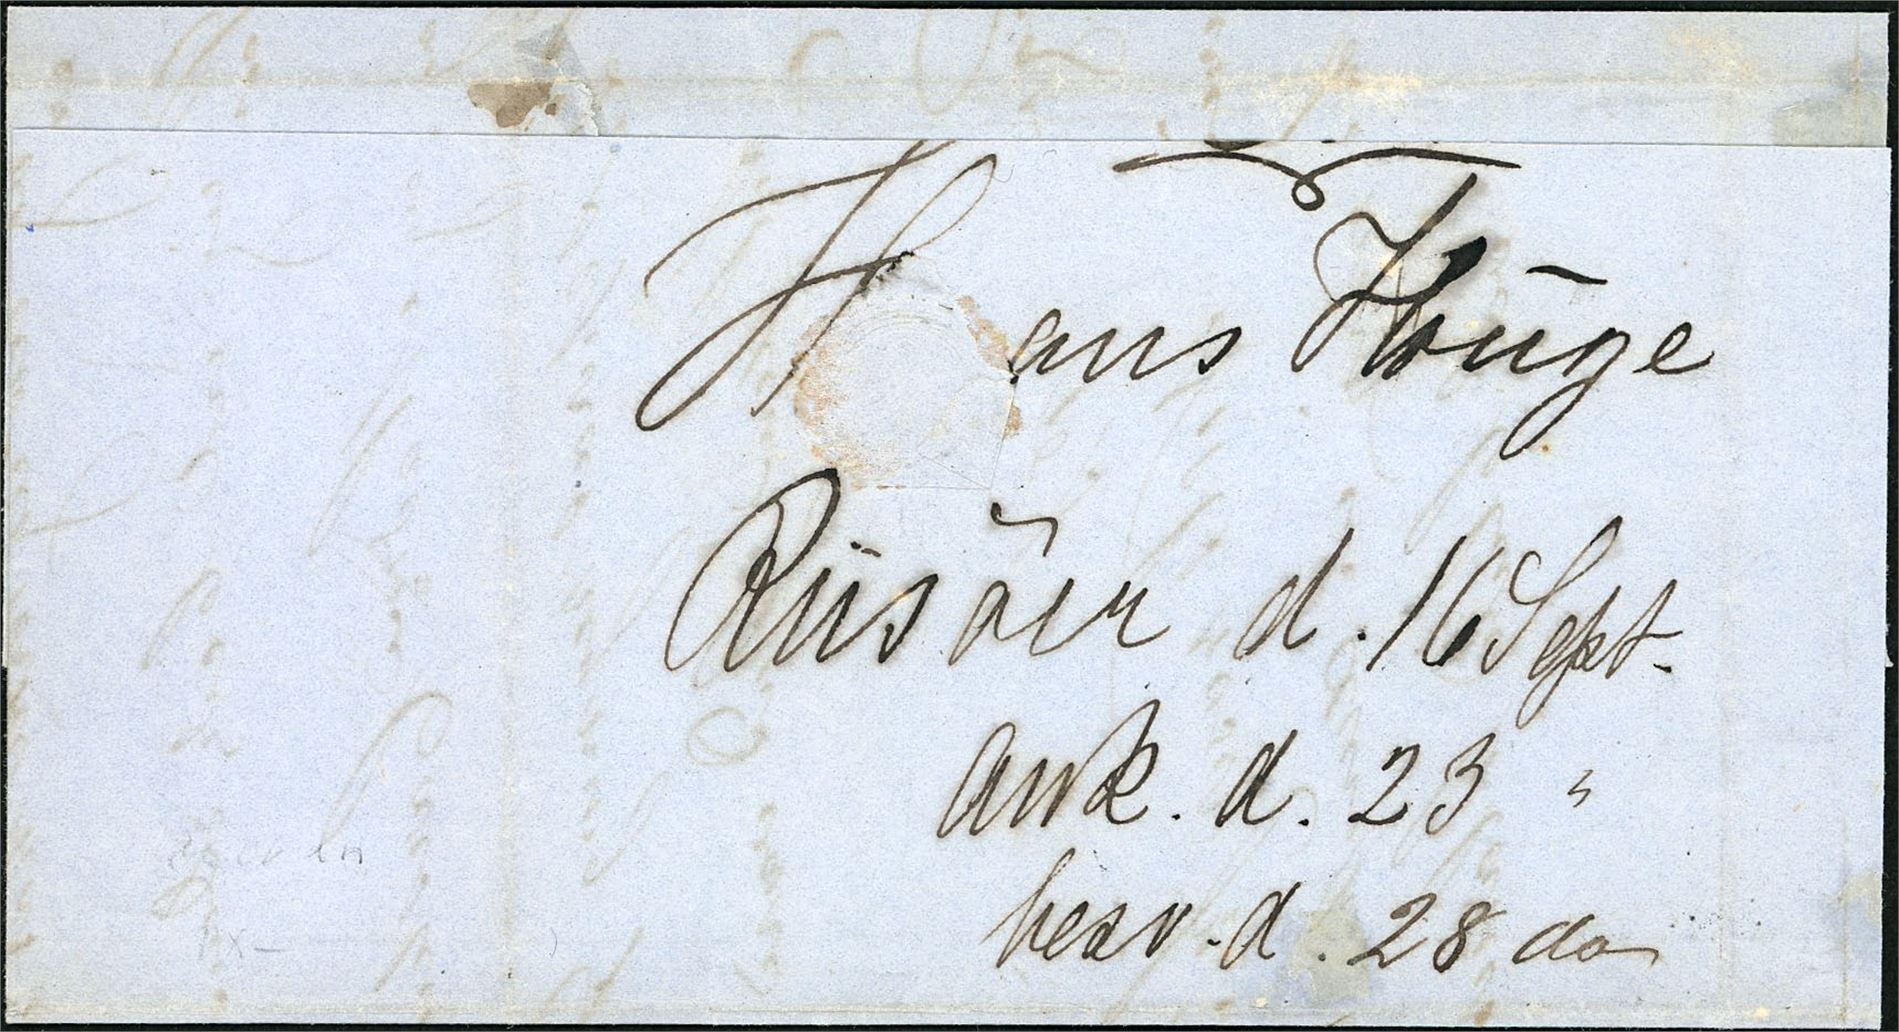 Hans Houge
Riisöer d. 16 Sept.
ank. d. 23 "
besv. d. 28 do